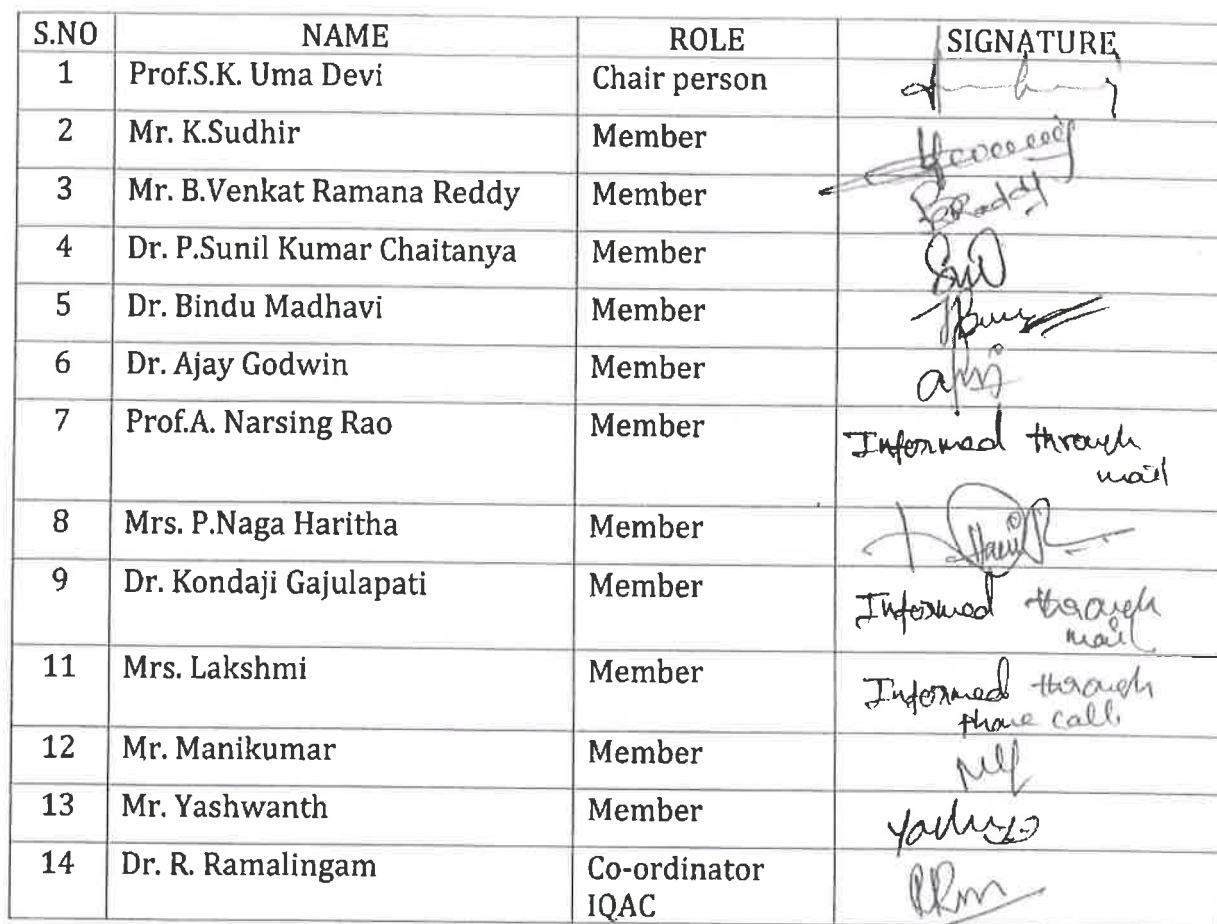 S.NO NAME ROLE SIGNATURE
1 Prof.S.K. Uma Devi Chair person
2 Mr. K.Sudhir Member
3 Mr. B.Venkat Ramana Reddy Member BRReddy
4 Dr. P.Sunil Kumar Chaitanya Member
5 Dr. Bindu Madhavi Member
6 Dr. Ajay Godwin Member
7 Prof.A. Narsing Rao Member Informed through
mail
8 Mrs. P.Naga Haritha Member
9 Dr. Kondaji Gajulapati Member Informed through
mail
11 Mrs. Lakshmi Member Informed through
phone call.
12 Mr. Manikumar Member
13 Mr. Yashwanth Member
14 Dr. R. Ramalingam Co-ordinator
IQAC